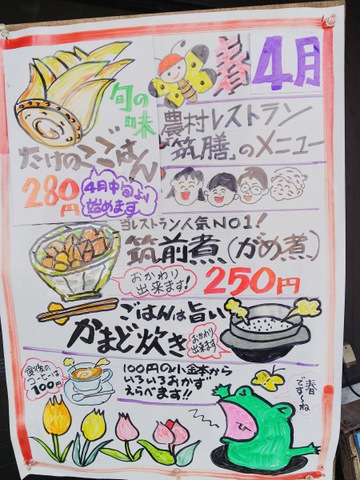 春4月
旬の味
農村レストラン
「筑膳」のメニュー
たけのこごはん
280円
4月中旬より
始めます
当レストラン人気NO1!
筑前煮(がめ煮)
おかわり
出来ます!
250円
ごはんは旨い
かまど炊き
おかわり
出来ます
食後の
コーヒーは
100円
100円の小金本から
いろいろおかず
えらべます!!
春
です〜ね